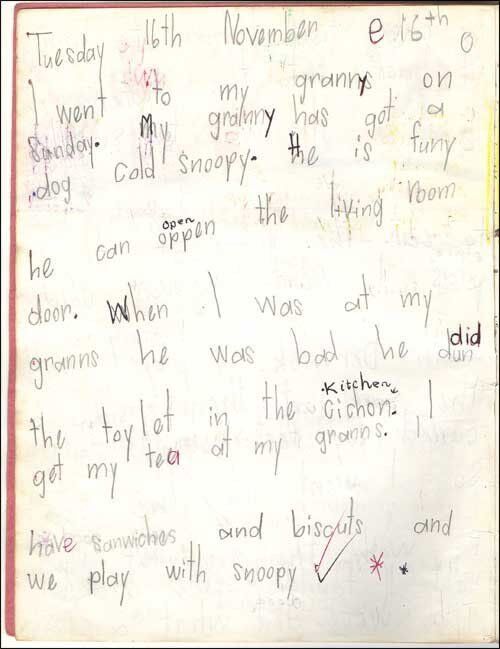 Tuesday 16th November e 16th
I went to my grannys on
Sunday. My granny has got a
dog cold snoopy. He is funy
he can oppen the living room
open
door. When I was at my
granns he was bad he dun
did
the toylet in the cichon. I
Kitchen
get my tea at my granns.
have sanwiches and biscuts and
we play with snoopy